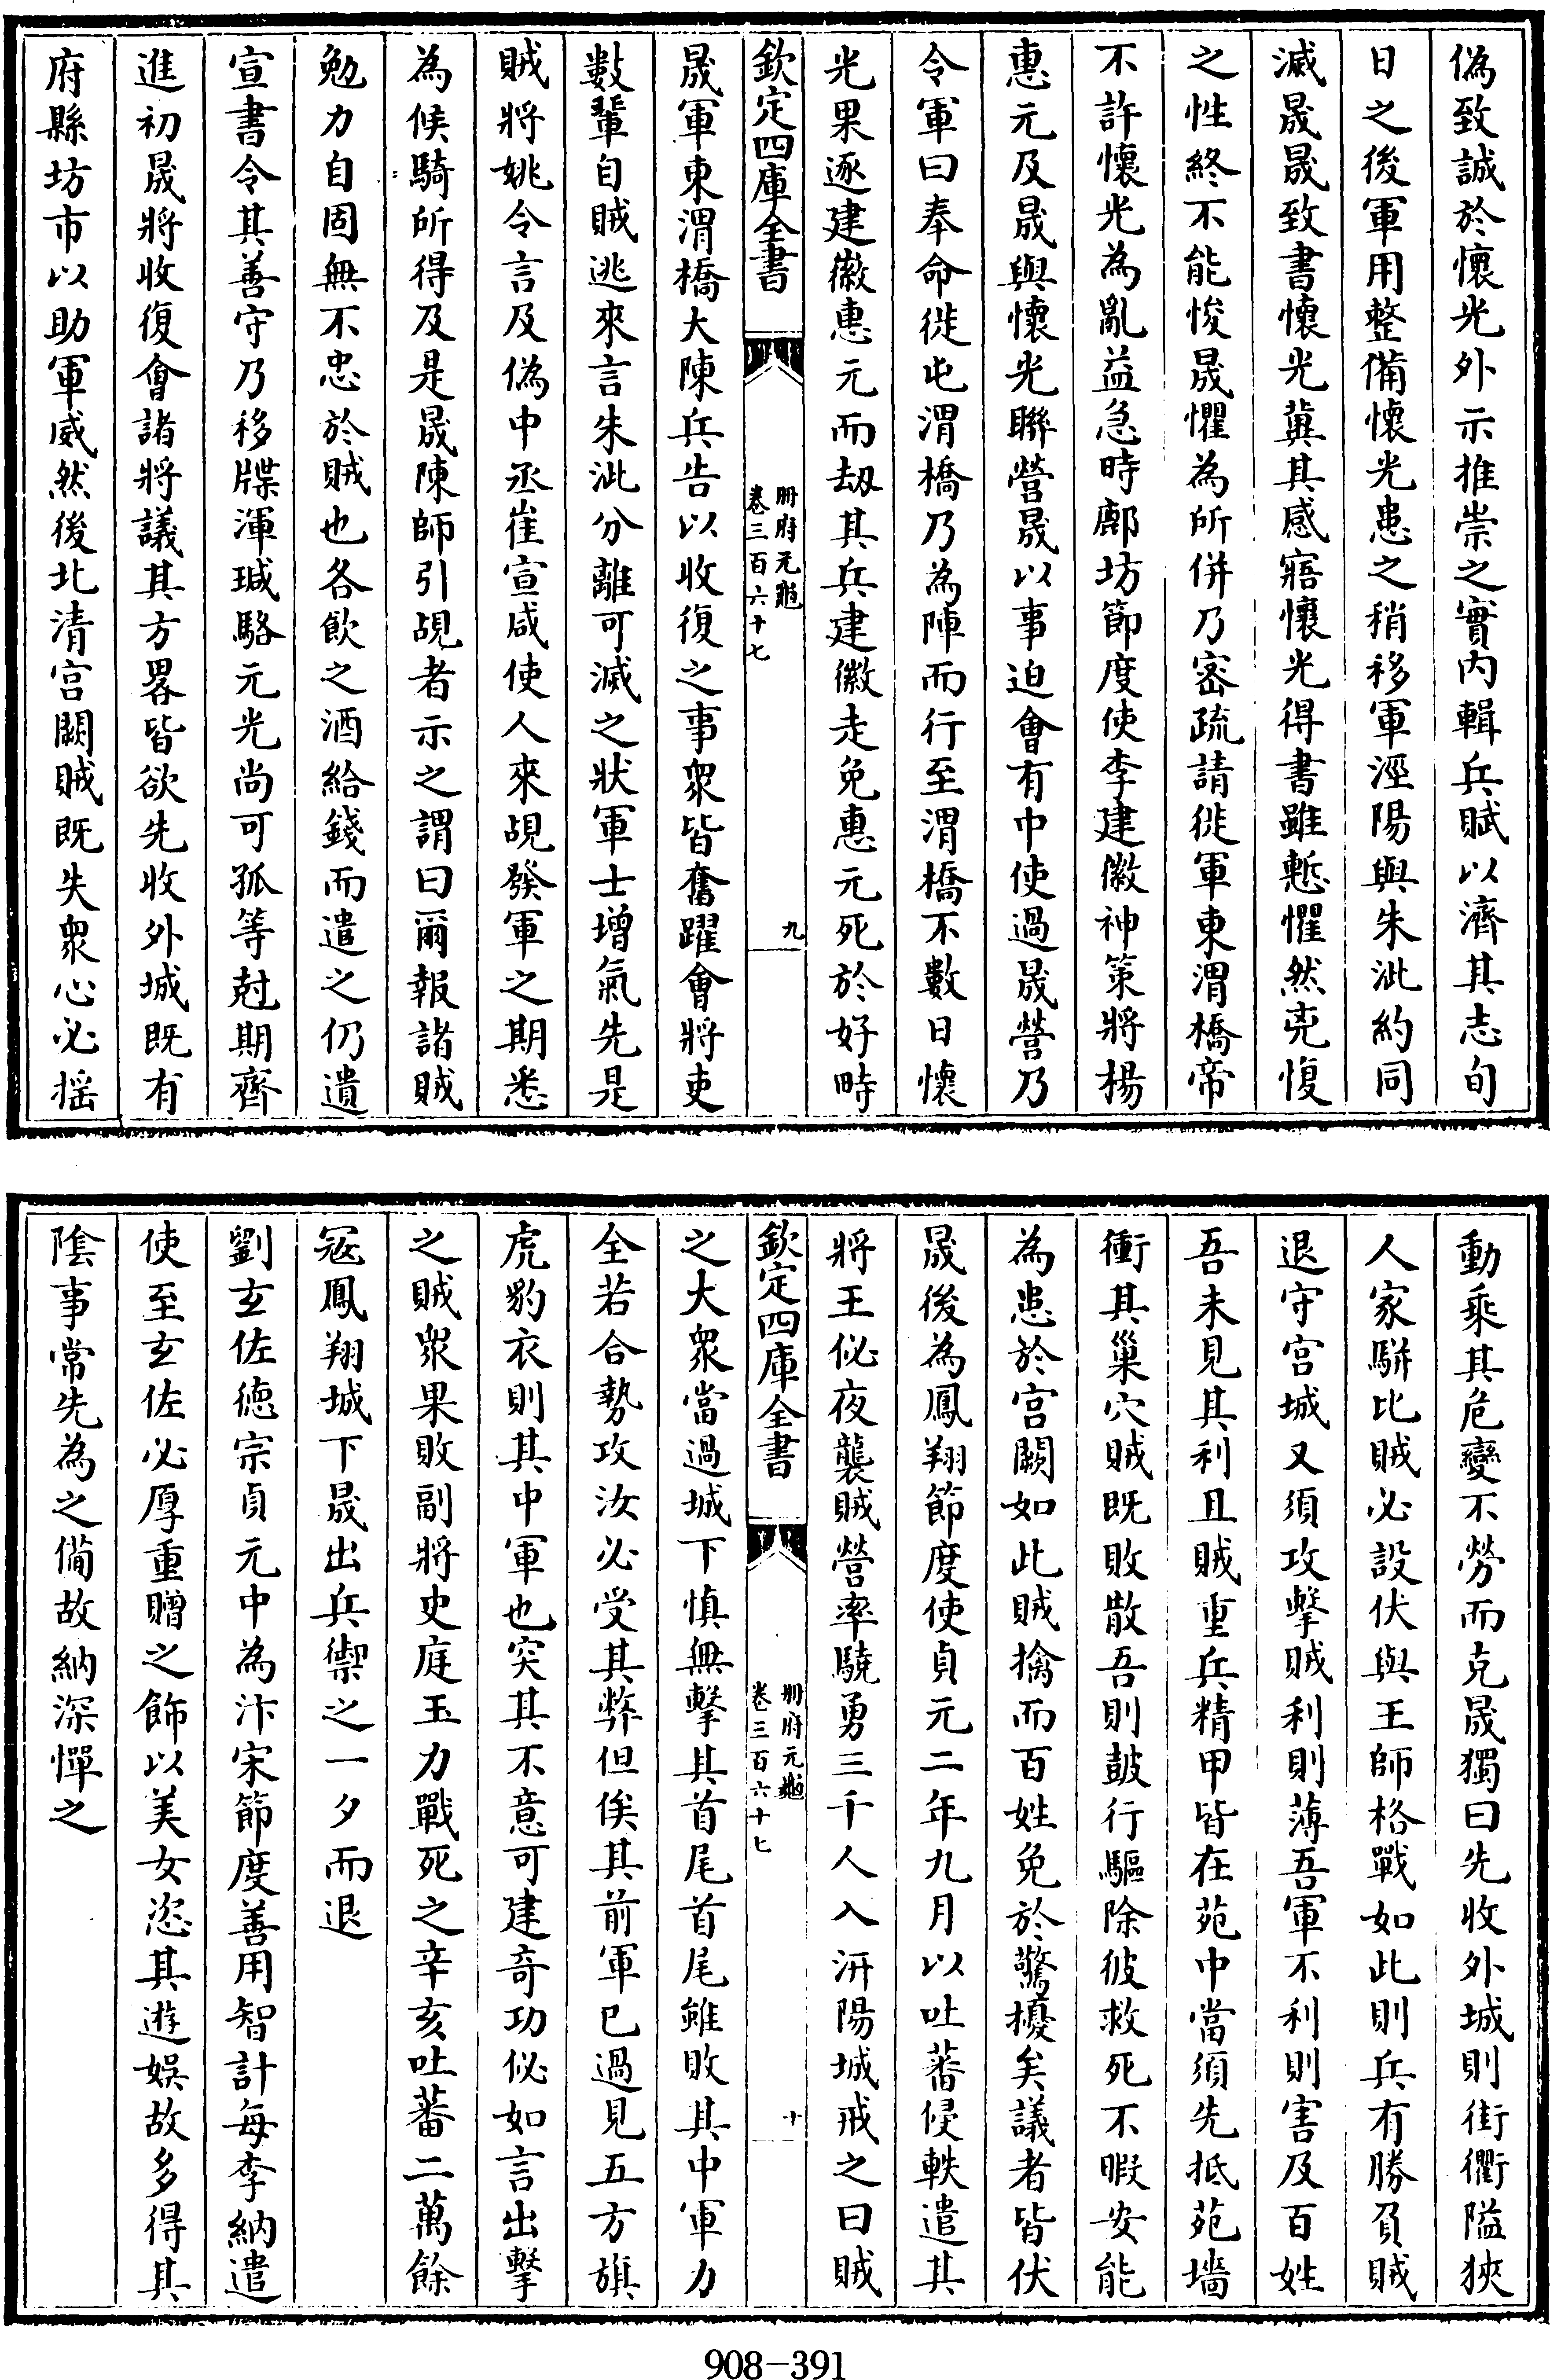 偽致誠於懷光外示推崇之實内輯兵賦以濟其志旬
日之後軍用整備懷光患之稍移軍涇陽與朱泚約同
滅晟晟致書懷光冀其感寤懷光得書雖慙懼然兗愎
之性終不能悛晟懼為所併乃密疏請徙軍東渭橋帝
不許懷光為亂益急時鄜坊節度使李建徽神策將楊
惠元及晟與懷光聯營晟以事迫會有中使過晟營乃
令軍曰奉命徙屯渭橋乃為陣而行至渭橋不數日懷
光果逐建徽惠元而劫其兵建徽走免惠元死於好畤
欽定四庫全書
冊府元龜
卷三百六十七
九
晟軍東渭橋大陳兵告以收復之事衆皆奮躍會將吏
數輩自賊逃來言朱泚分離可滅之狀軍士增氣先是
賊將姚令言及偽中丞崔宣咸使人來覘發軍之期悉
為候騎所得及是晟陳師引覘者示之謂曰爾報諸賊
勉力自固無不忠於賊也各飲之酒給錢而遣之仍遺
宣書令其善守乃移牒渾瑊駱元光尚可孤等尅期齊
進初晟將收復會諸將議其方畧皆欲先收外城既有
府縣坊市以助軍威然後北清宫闕賊既失衆心必揺
動乘其危變不勞而克晟獨曰先收外城則街衢隘狹
人家駢比賊必設伏與王師格戰如此則兵有勝負賊
退守宫城又須攻擊賊利則薄吾軍不利則害及百姓
吾未見其利且賊重兵精甲皆在苑中當須先抵苑墻
衝其巢穴賊既敗散吾則鼓行驅除彼救死不暇安能
為患於宫闕如此賊擒而百姓免於驚擾矣議者皆伏
晟後為鳳翔節度使貞元二年九月以吐蕃侵軼遣其
將王佖夜襲賊營率驍勇三千人入汧陽城戒之曰賊
欽定四庫全書
冊府元龜
卷三百六十七
十
之大衆當過城下慎無擊其首尾首尾雖敗其中軍力
全若合勢攻汝必受其弊但俟其前軍已過見五方旗
虎豹衣則其中軍也突其不意可建奇功佖如言出擊
之賊衆果敗副將史庭玉力戰死之辛亥吐蕃二萬餘
宼鳳翔城下晟出兵禦之一夕而退
劉玄佐德宗貞元中為汴宋節度善用智計每李納遣
使至玄佐必厚重贈之飾以美女恣其遊娱故多得其
隂事常先為之備故納深憚之
908-391